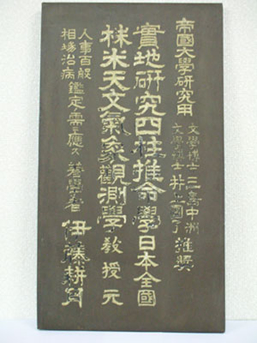 帝國大學研究用
文學博士 三島中洲
文學博士 井上圓了
推奬
實地研究四柱推命學日本全國
株米天文氣象觀測學教授元
人事百般
相場治病
鑑定需ニ應ズ 著學者 伊藤耕月